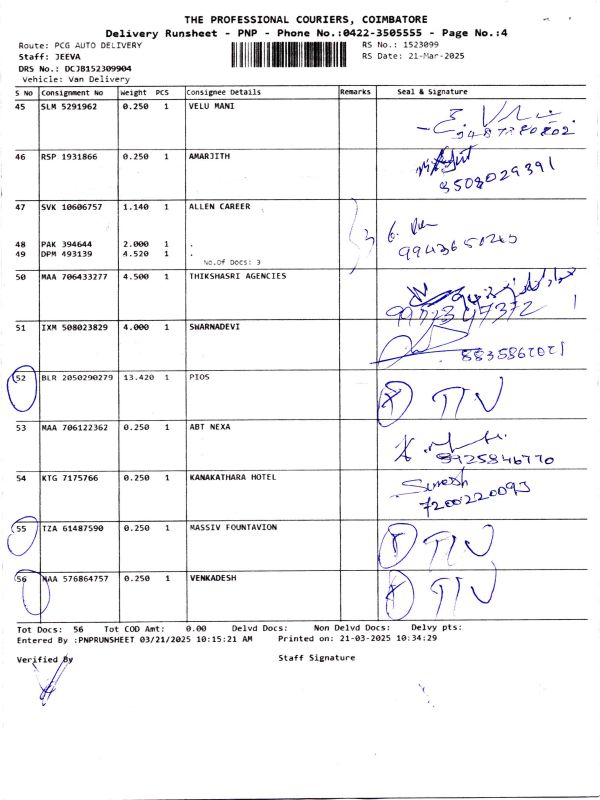 THE PROFESSIONAL COURIERS, COIMBATORE
Delivery Runsheet - PNP - Phone No.:0422-3505555 - Page No.:4
Route: PCG AUTO DELIVERY RS No.: 1523099
Staff: JEEVA RS Date: 21-Mar-2025
DRS No.: DCJB152309904
Vehicle: Van Delivery
S No Consignment No Weight PCS Consignee Details Remarks Seal & Signature
45 SLM 5291962 0.250 1 VELU MANI
9487780802
46 RSP 1931866 0.250 1 AMARJITH
8508029391
47 SVK 10606757 1.140 1 ALLEN CAREER
48 PAK 394644 2.000 1 .
49 DPM 493139 4.520 1 .
No.Of Docs: 3
50 MAA 706433277 4.500 1 THIKSHASRI AGENCIES
51 IXM 508023829 4.000 1 SWARNADEVI
52 BLR 2050290279 13.420 1 PIOS
53 MAA 706122362 0.250 1 ABT NEXA
9925846770
54 KTG 7175766 0.250 1 KANAKATHARA HOTEL
Suresh
7200220093
55 TZA 61487590 0.250 1 MASSIV FOUNTAVION
56 MAA 576864757 0.250 1 VENKADESH
Tot Docs: 56 Tot COD Amt: 0.00 Delvd Docs: Non Delvd Docs: Delvy pts:
Entered By :PNPRUNSHEET 03/21/2025 10:15:21 AM Printed on: 21-03-2025 10:34:29
Verified By Staff Signature